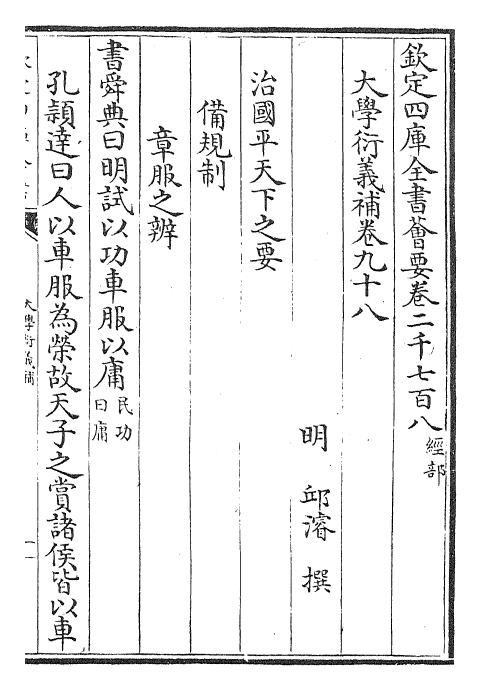 欽定四庫全書薈要卷二千七百八經部
大學衍義補卷九十八
明 邱濬 撰
治國平天下之要
備規制
章服之辨
書舜典曰明試以功車服以庸民功曰庸
孔頴達曰人以車服為榮故天子之賞諸侯皆以車
大學衍義補
一